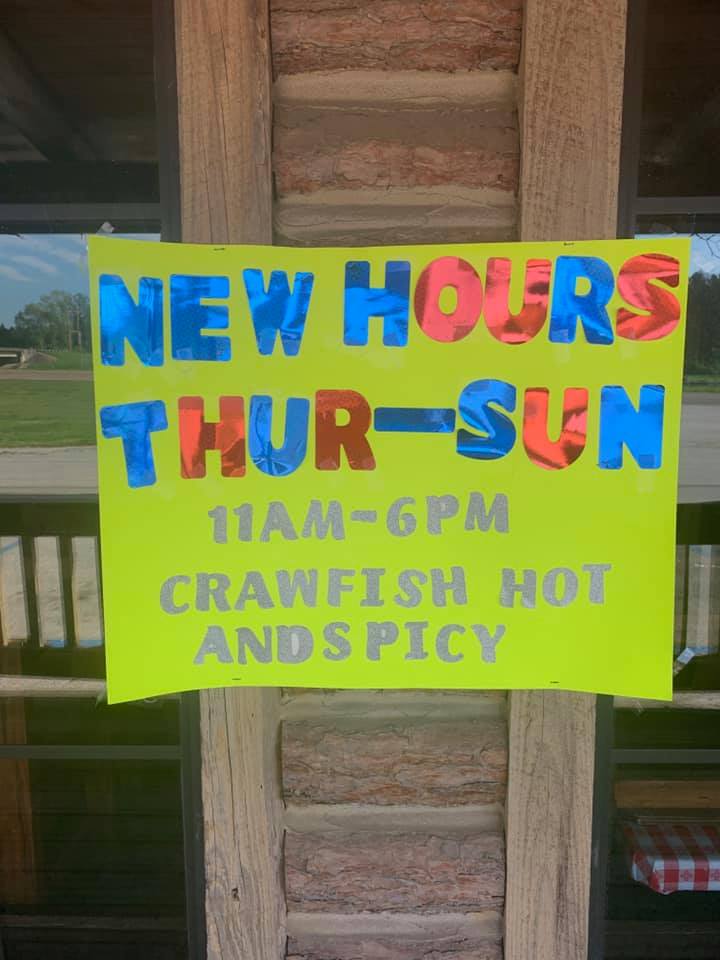 NEW HOURS
THUR-SUN
11AM-6PM
CRAWFISH HOT
ANDSPICY